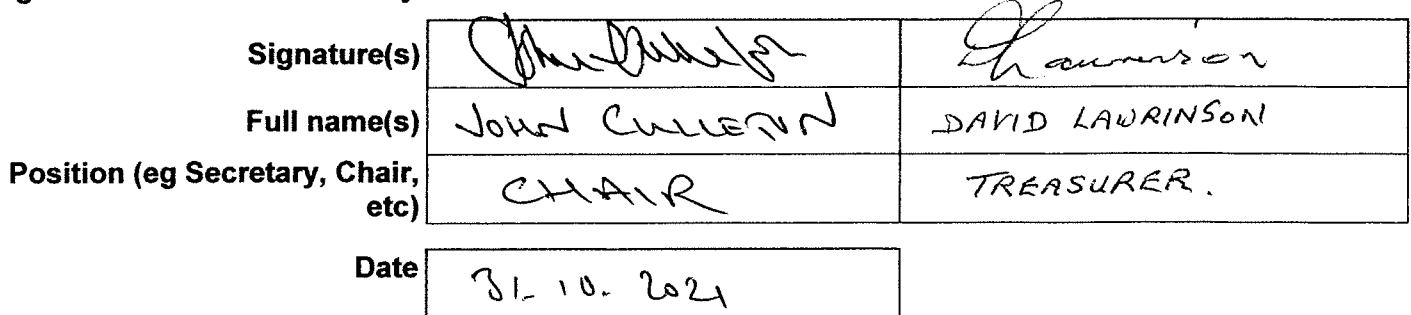 Signature(s)
Full name(s) JOHN CULLETON DAVID LAWRINSON
Position (eg Secretary, Chair, CHAIR TREASURER.
etc)
Date 31-10-2021